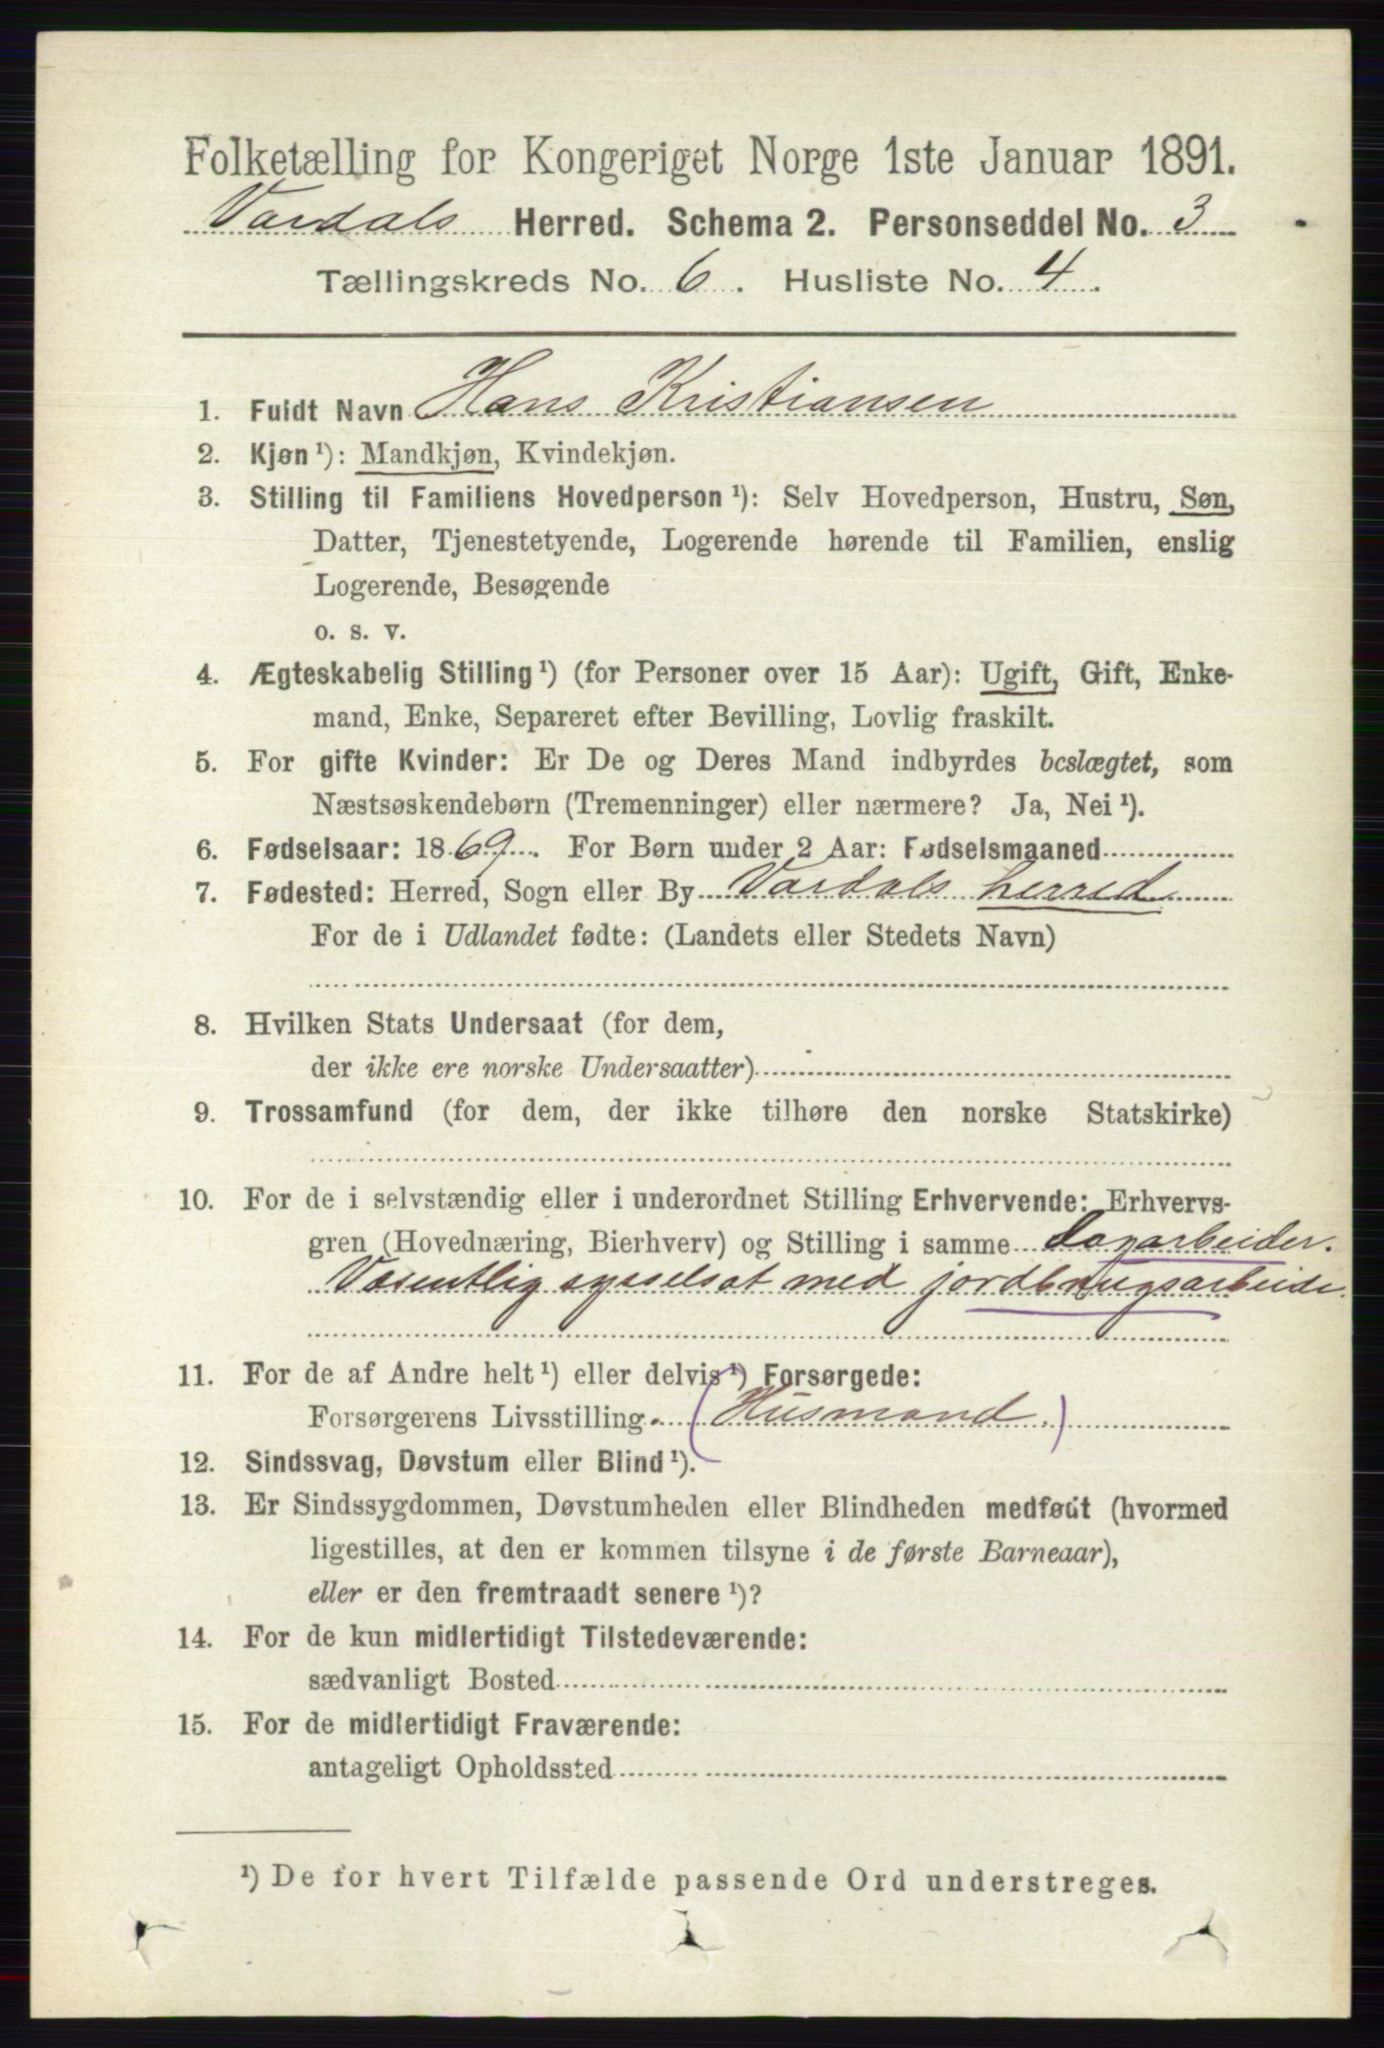 Folketælling for Kongeriget Norge 1ste Januar 1891.
Vardals Herred. Schema 2. Personseddel No. 3
Tællingskreds No. 6. Husliste No. 4.
1. Fuldt Navn Hans Kristiansen
2. Kjøn ¹): Mandkjøn, Kvindekjøn.
3. Stilling til Familiens Hovedperson ¹): Selv Hovedperson, Hustru, Søn,
Datter, Tjenestetyende, Logerende hørende til Familien, enslig
Logerende, Besøgende
o. s. v.
4. Ægteskabelig Stilling ¹) (for Personer over 15 Aar): Ugift, Gift, Enke-
mand, Enke, Separeret efter Bevilling, Lovlig fraskilt.
5. For gifte Kvinder: Er De og Deres Mand indbyrdes beslægtet, som
Næstsøskendebørn (Tremenninger) eller nærmere? Ja, Nei ¹).
6. Fødselsaar: 1869. For Børn under 2 Aar: Fødselsmaaned
7. Fødested: Herred, Sogn eller By Vardals herred
For de i Udlandet fødte: (Landets eller Stedets Navn)
8. Hvilken Stats Undersaat (for dem,
der ikke ere norske Undersaatter)
9. Trossamfund (for dem, der ikke tilhøre den norske Statskirke)
10. For de i selvstændig eller i underordnet Stilling Erhvervende: Erhvervs-
gren (Hovednæring, Bierhverv) og Stilling i samme Dagarbeider.
Væsentlig sysselsat med jordbrugsarbeide.
11. For de af Andre helt ¹) eller delvis ¹) Forsørgede:
Forsørgerens Livsstilling. (Husmand.)
12. Sindssvag, Døvstum eller Blind ¹).
13. Er Sindssygdommen, Døvstumheden eller Blindheden medfødt (hvormed
ligestilles, at den er kommen tilsyne i de første Barneaar),
eller er den fremtraadt senere ¹)?
14. For de kun midlertidigt Tilstedeværende:
sædvanligt Bosted
15. For de midlertidigt Fraværende:
antageligt Opholdssted
¹) De for hvert Tilfælde passende Ord understreges.